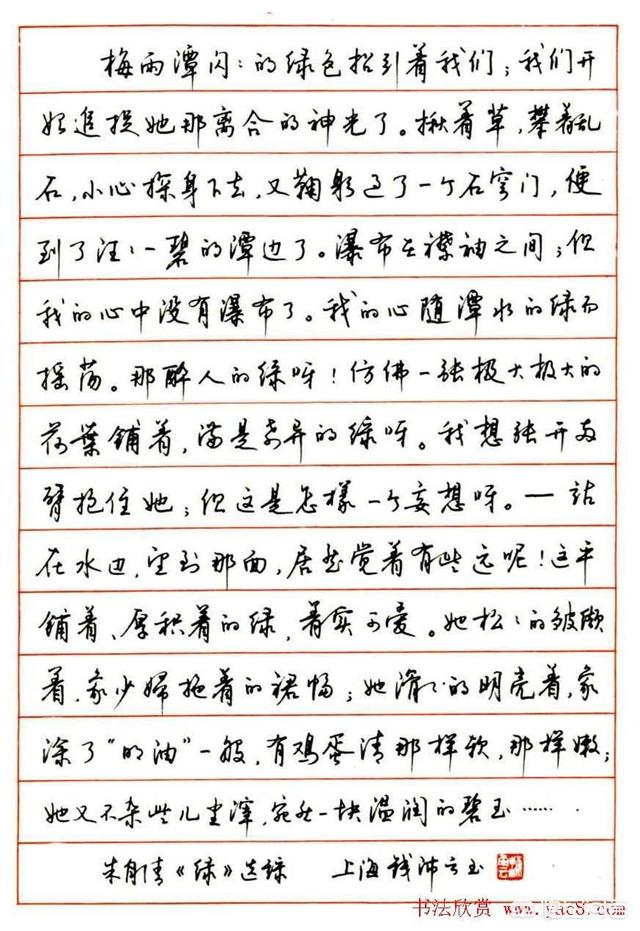 梅雨潭闪〻的绿色招引着我们；我们开
始追捉她那离合的神光了。揪着草，攀着乱
石，小心探身下去，又鞠躬过了一个石穹门，便
到了汪〻一碧的潭边了。瀑布在襟袖之间；但
我的心中没有瀑布了。我的心随潭水的绿而
摇荡。那醉人的绿呀！仿佛一张极大极大的
荷葉铺着，满是奇异的绿呀。我想张开两
臂抱住她；但这是怎樣一个妄想呀。—站
在水边，望到那面，居然觉着有些远呢！这平
铺着、厚积着的绿，着实可爱。她松〻的皱缬
着，象少婦拖着的裙幅；她滑〻的明亮着，象
涂了“明油”一般，有鸡蛋清那样软，那样嫩；
她又不杂些儿尘滓，宛然一块温润的碧玉……
朱自清《绿》选录 上海钱沛云书
书法欣赏 www.yac8.com